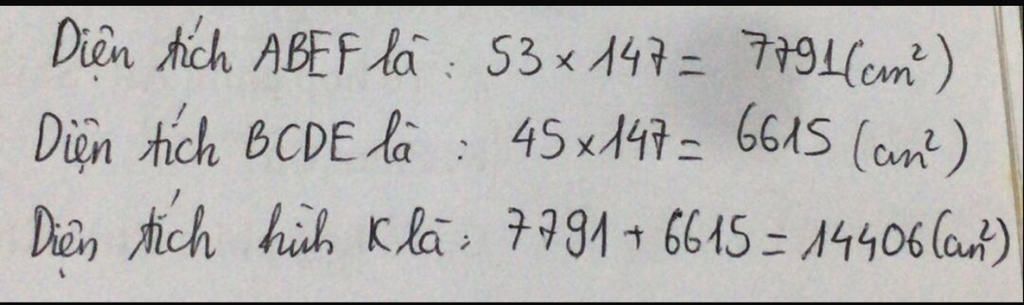 Diện tích ABEF là : 53 × 147 = 7791 (cm²)
Diện tích BCDE là : 45 × 147 = 6615 (cm²)
Diện tích hình K là : 7791 + 6615 = 14406 (cm²)